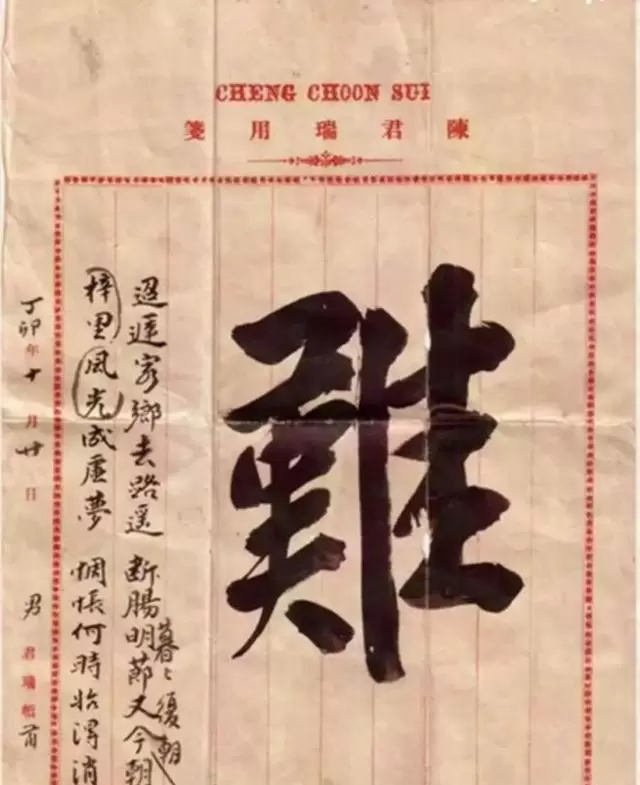 CHENG CHOON SUI
陳君瑞用箋
難
迢遞客鄉去路遥 断腸明節又今朝
暮〻復朝
梓里風光成虛夢 惆悵何時始得消
丁卯年十月廿日 男君瑞